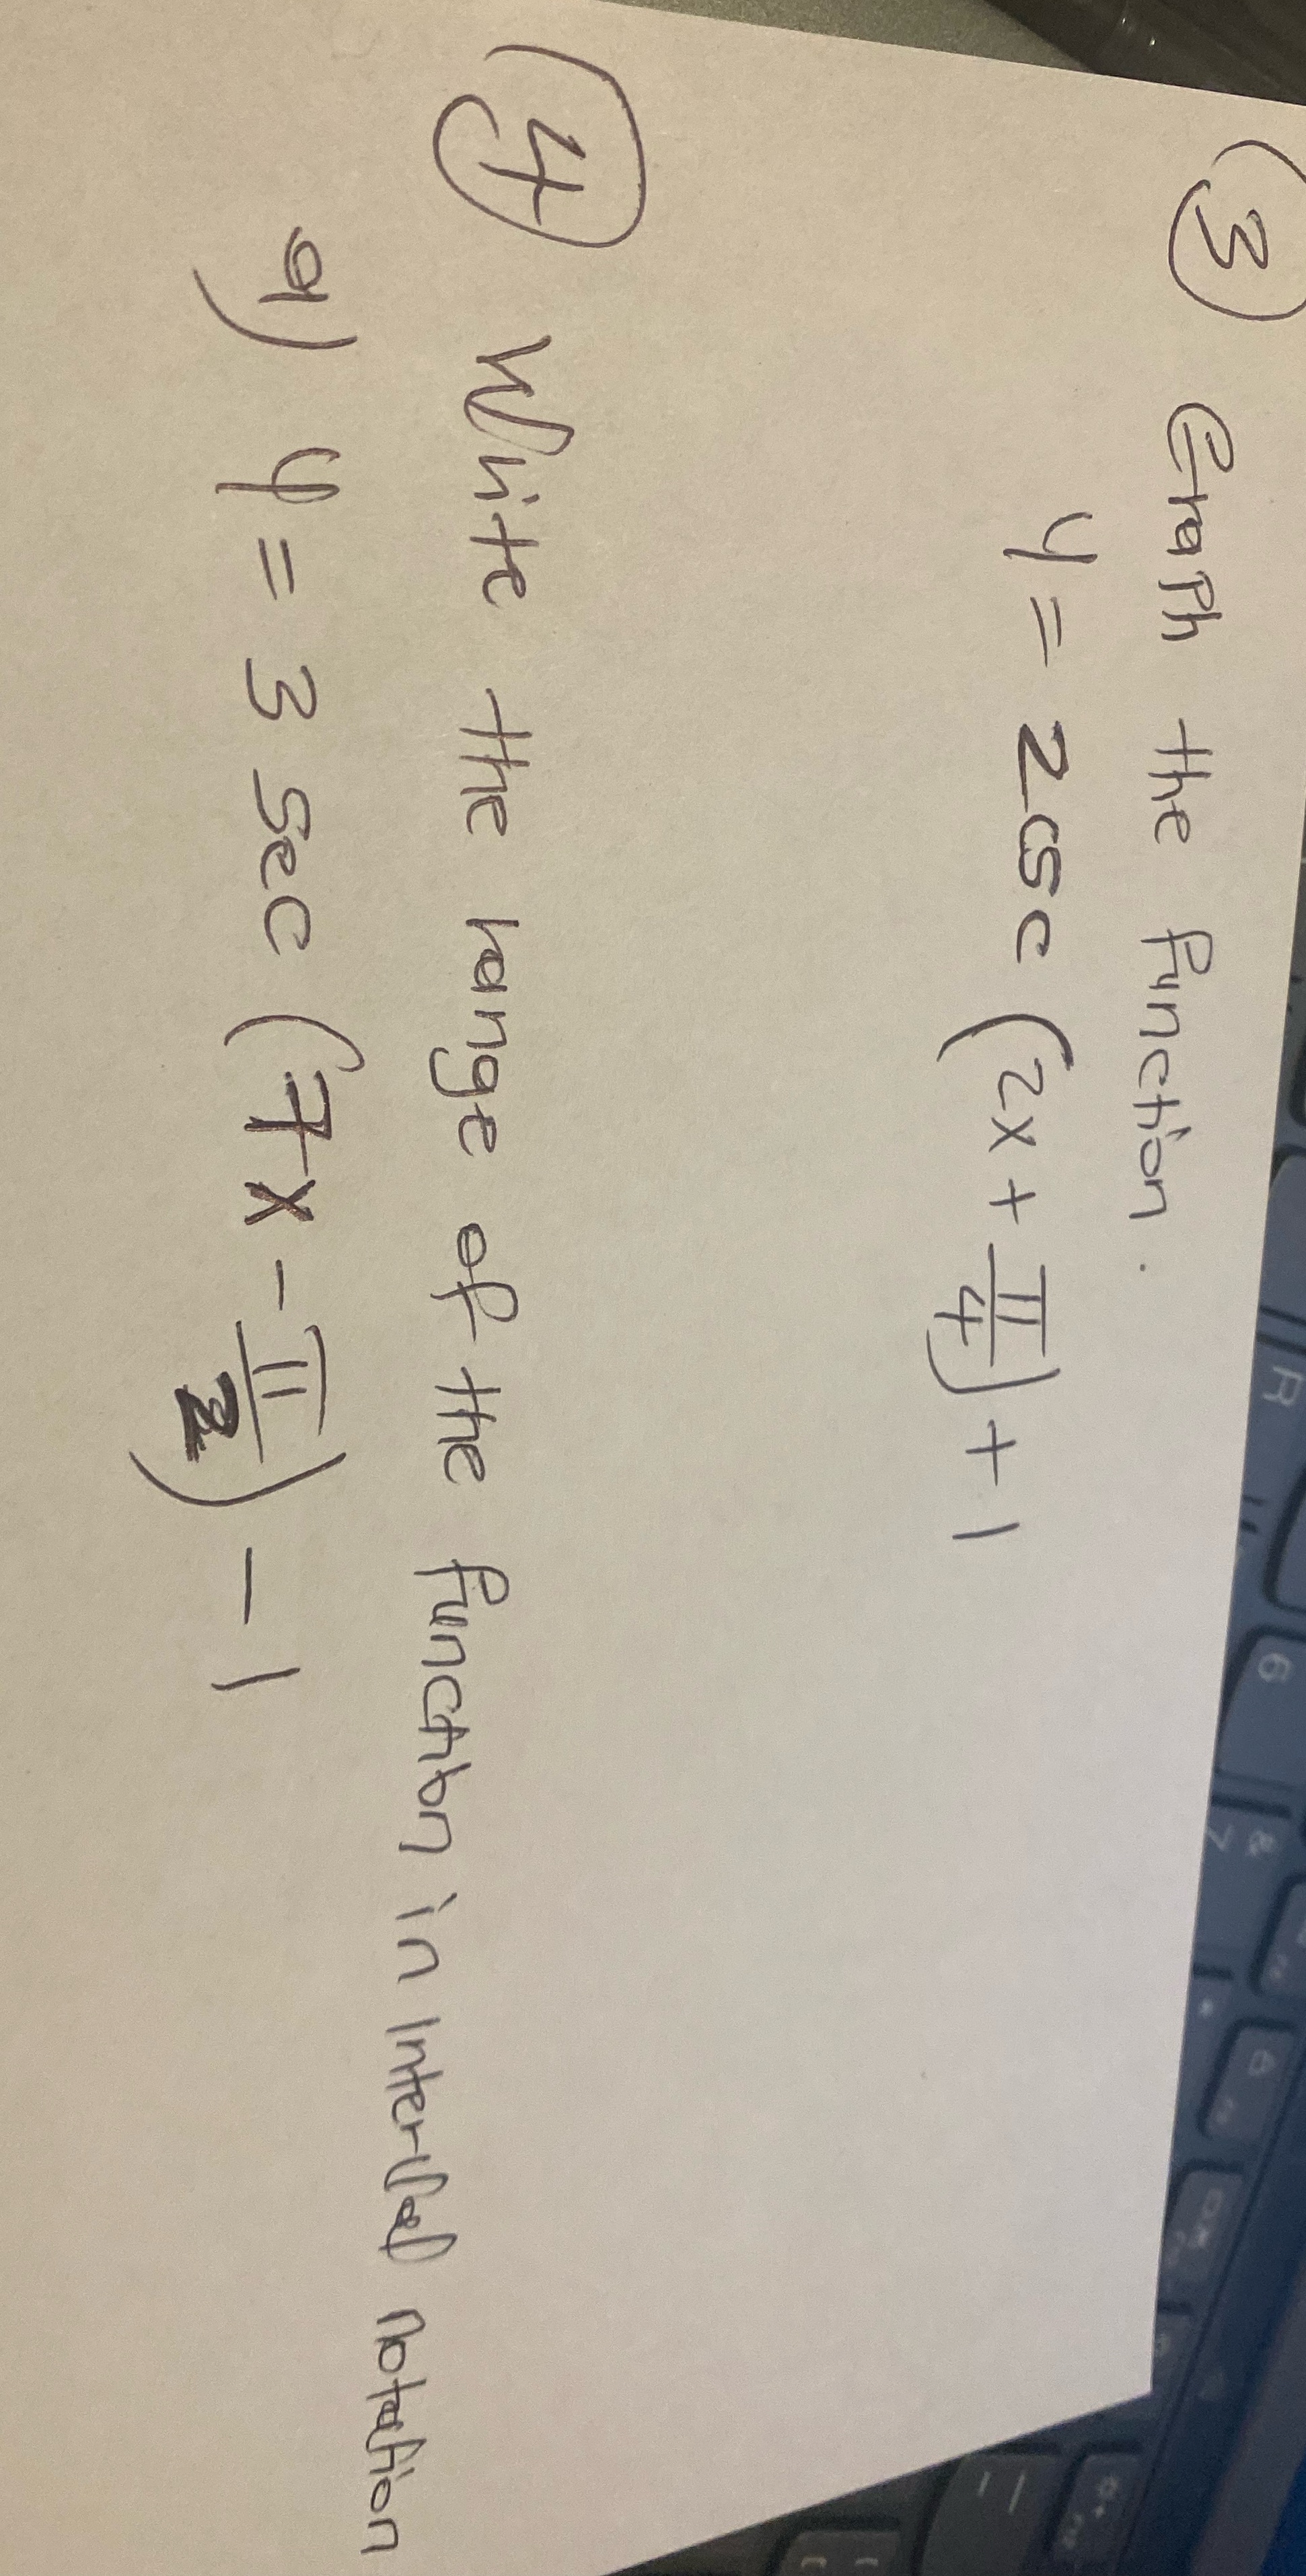 3 Graph the function.
y = 2 csc (2x + π/4) + 1
4 Write the range of the function in interval notation
a) y = 3 sec (7x - π/2) - 1